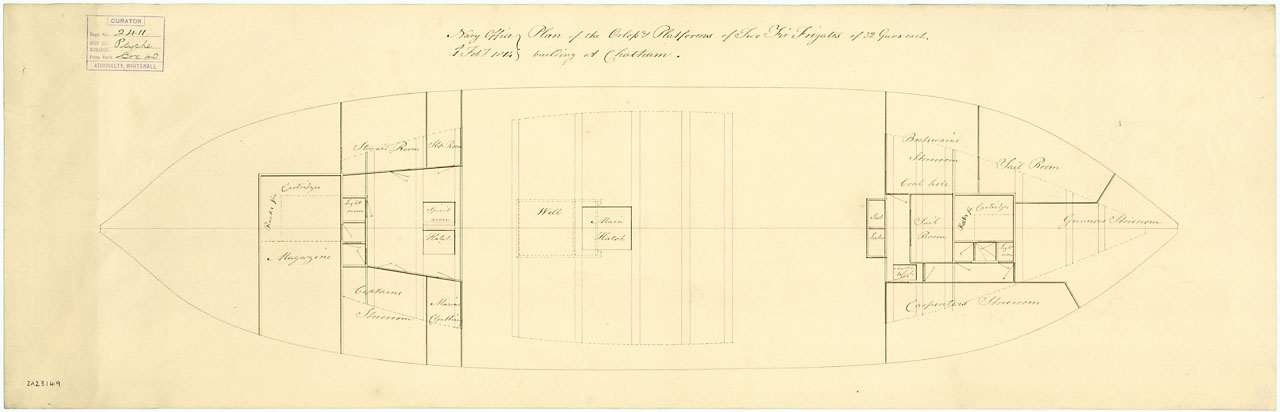 CURATOR
Regd. No. 2411
SHIP OR SUBJECT Psyche
From Pack Box 40
ADMIRALTY, WHITEHALL
Navy Office } Plan of the Orlop & Platforms of Two Fir Frigates of 32 Guns each,
Febr. 1814 } building at Chatham.
Steward Room
Slop Room
Cartridges
Racks for
Light room
Spirit room
Hatch
Magazine
Captains
Storeroom
Marine
Cloathing
Well
Main
Hatch
Boatswains
Storeroom
Coal hole
Sail Room
Sail
Room
Racks for
Cartridges
Light
room
Gunners Storeroom
Carpenters Storeroom
ZAZ3149